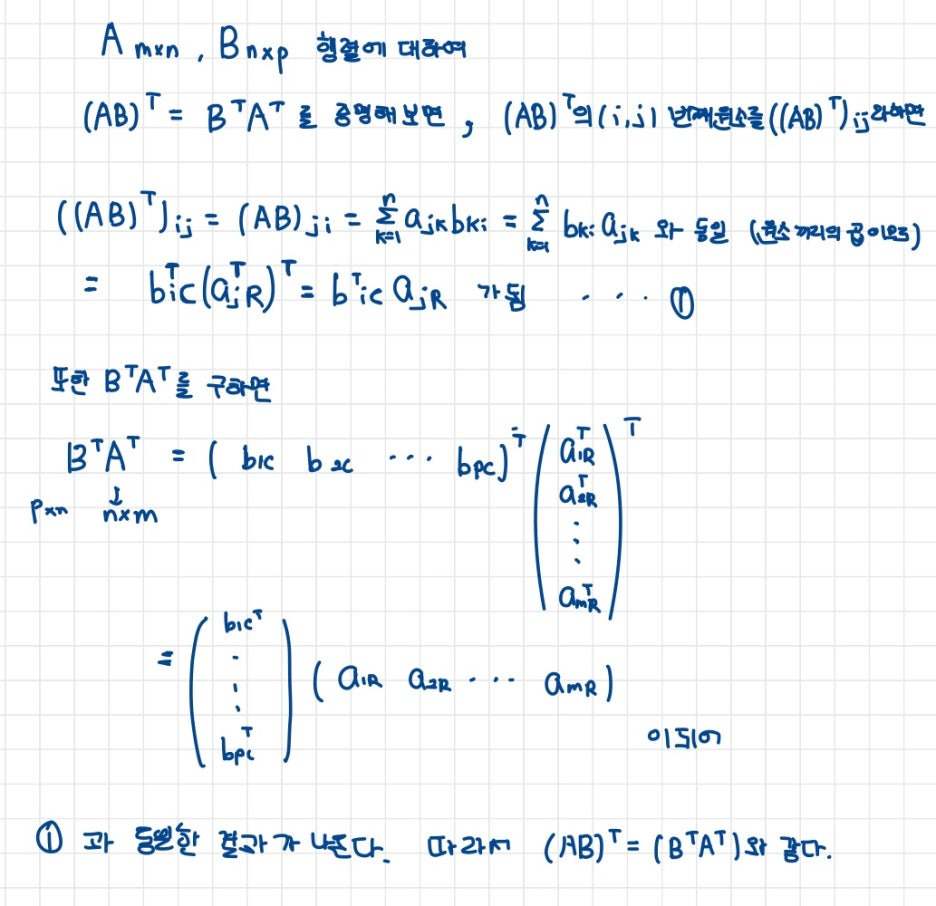 A m×n , B n×p 행렬에 대하여
(AB)ᵀ = BᵀAᵀ 를 증명해보면 , (AB)ᵀ의 (i,j) 번째원소를 ((AB)ᵀ)ij라하면
((AB)ᵀ)ij = (AB)ji = Σ(k=1, n) ajk bki = Σ(k=1, n) bki ajk 와 동일 (원소끼리의 곱이므로)
= bᵀic(aᵀjR)ᵀ = bᵀic ajR 가 됨 · · · ①
또한 BᵀAᵀ를 구하면
BᵀAᵀ = ( b1c b2c ··· bpc)ᵀ ( aᵀ1R
p×n ↓ n×m aᵀ2R
·
·
·
aᵀmR )ᵀ
= ( b1cᵀ
·
·
·
bpcᵀ ) ( a1R a2R ··· amR )
이되어
① 과 동일한 결과가 나온다. 따라서 (AB)ᵀ = (BᵀAᵀ)와 같다.